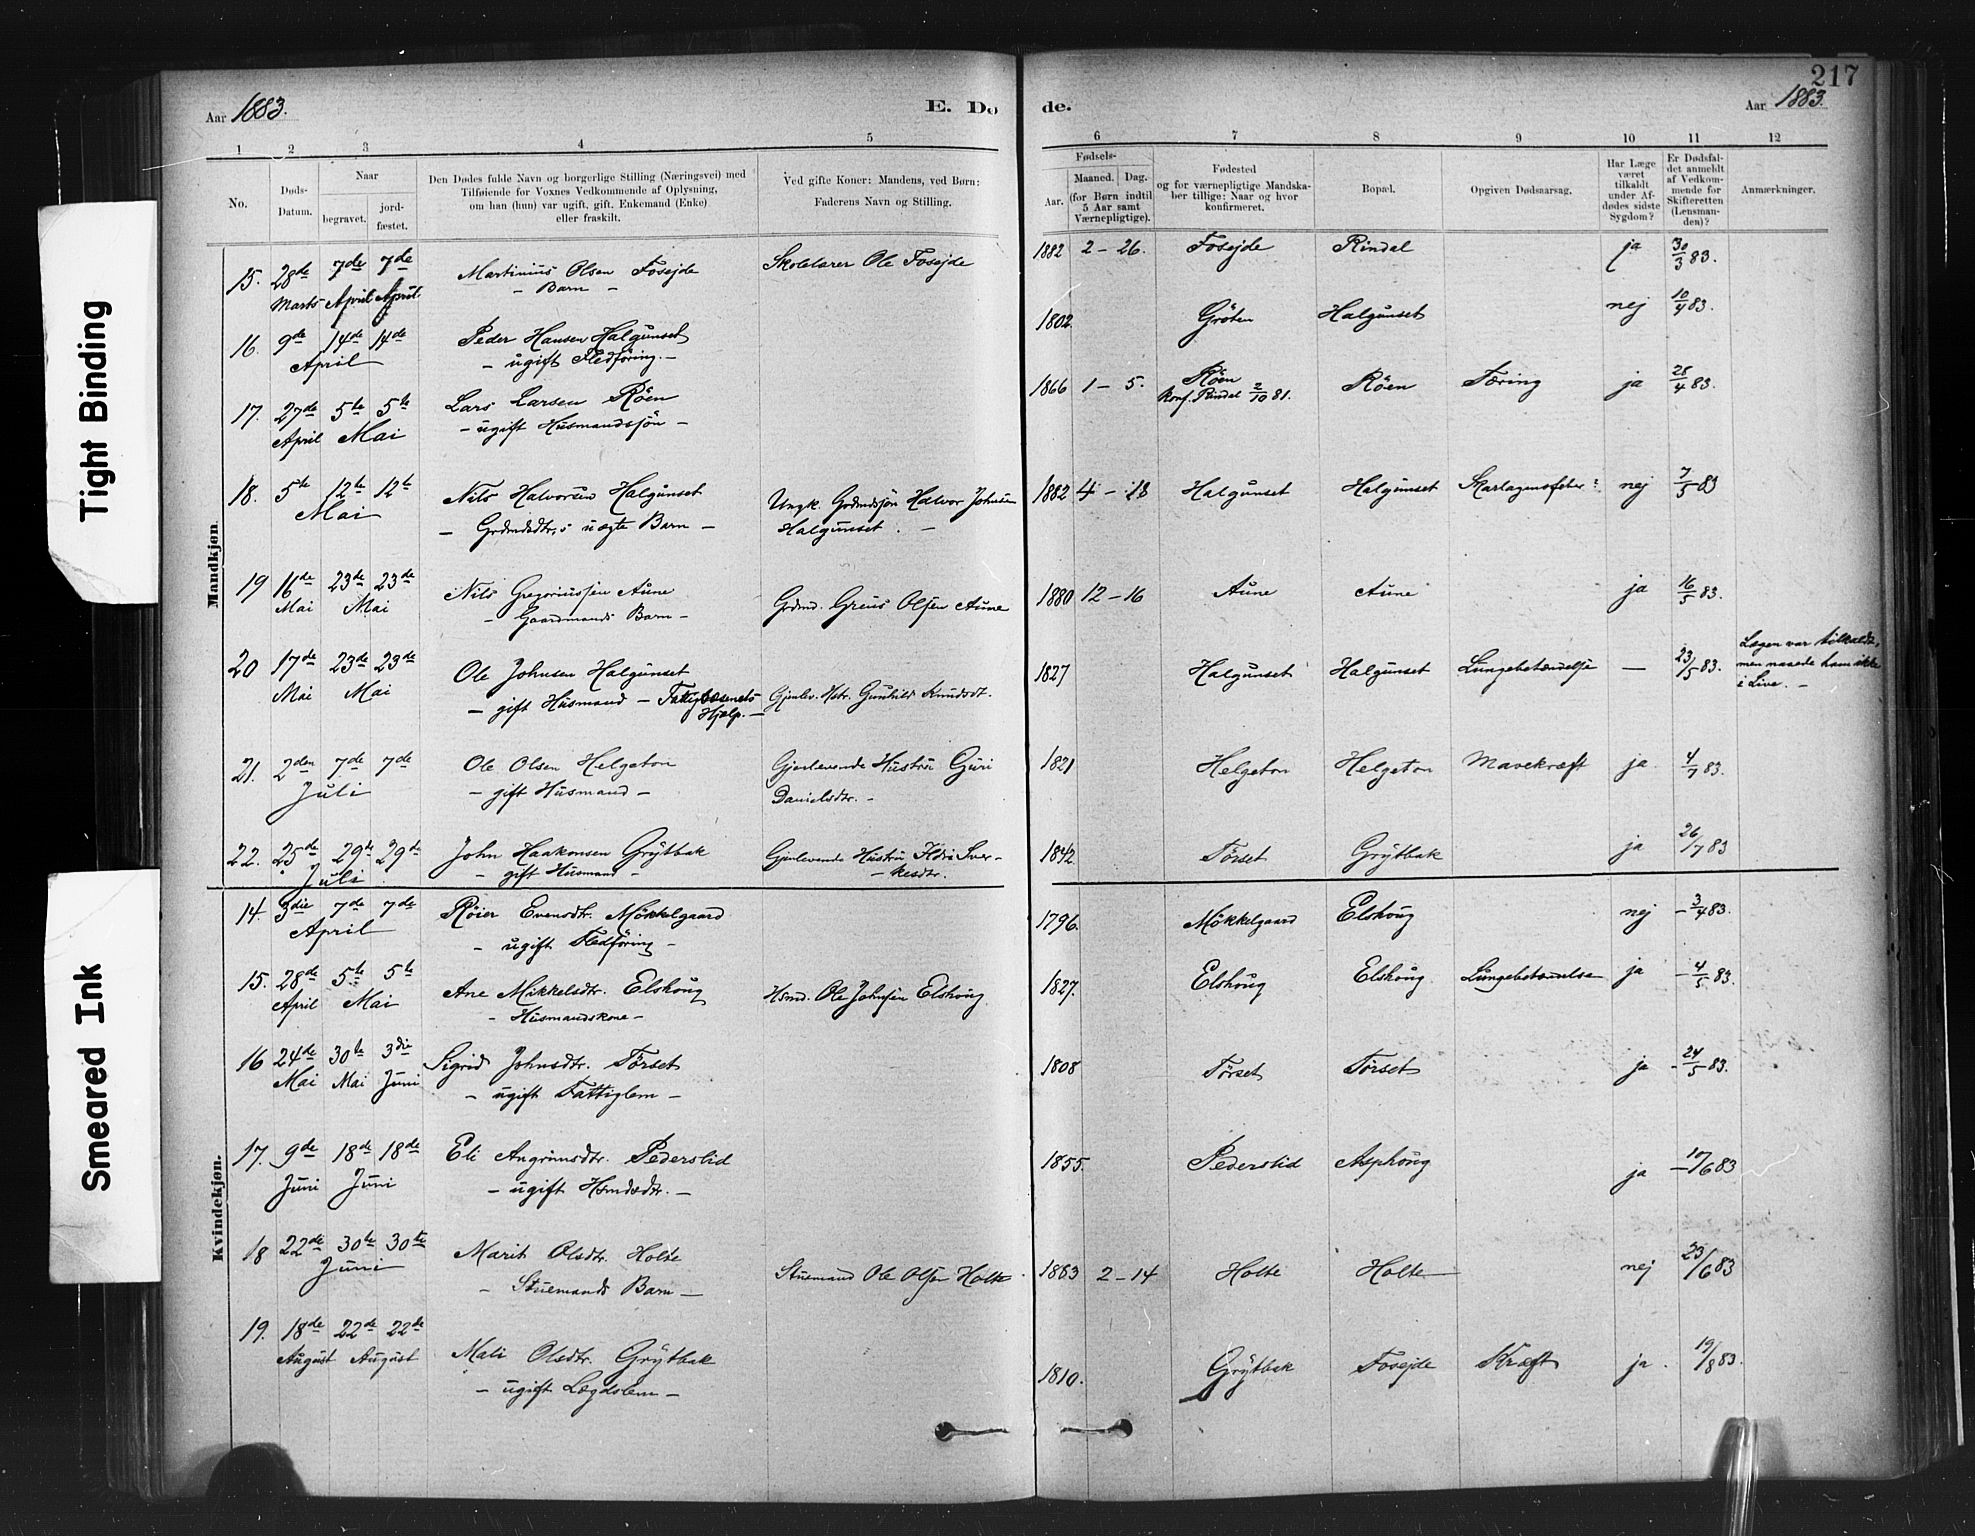 217
Aar 1883.
E. Dø de.
Aar 1883.
1 2 3 4 5 6 7 8 9 10 11 12
No.
Døds-Datum.
Naar
begravet.
jordfæstet.
Den Dødes fulde Navn og borgerlige Stilling (Næringsvei) med
Tilføiende for Voxnes Vedkommende af Oplysning,
om han (hun) var ugift, gift, Enkemand (Enke)
eller fraskilt.
Ved gifte Koner: Mandens, ved Børn:
Faderens Navn og Stilling.
Fødsels-
Aar.
Maaned. Dag.
(for Børn indtil
5 Aar samt
Værnepligtige).
Fødested
og for værnepligtige Mandska-
ber tillige: Naar og hvor
konfirmeret.
Bopæl.
Opgiven Dødsaarsag.
Har Læge
været
tilkaldt
under Af-
dødes sidste
Sygdom?
Er Dødsfal-
det anmeldt
af Vedkom-
mende for
Skifteretten
(Lensman-
den)?
Anmærkninger.
Mandkjøn.
15. 28de Marts 7de April 7de April Martinius Olsen Fosejde Skolelærer Ole Fosejde 1882 2 – 26. Fosejde Rindal ja 30/3 83.
– Barn –
16. 9de 14de 14de April Peder Hansen Halgunset 1802. Grøten Halgunset nej 10/4 83.
– ugift Fledføring. –
17. 27de April 5te 5te Mai Lars Larsen Röen 1866 1 – 5. Röen Röen Tæring ja 28/4 83.
– ugift Husmandssjön – Konf. Rindal 2/10 81.
18. 5te 12te 12te Mai Nils Halvorsen Halgunset Ungk. Grdmdssjön Halvor Johnsen 1882 4 – 18 Halgunset Halgunset Skarlagensfeber ? nej 7/5 83
– Grdmdsdtr,s uægte Barn – Halgunset. –
19 16de Mai 23de 23de Mai Nils Gregoriussen Aune Grdmd. Greus Olsen Aune 1880 12 – 16 Aune Aune ja 16/5 83.
– Gaardmands Barn –
20 17de Mai 23de 23de Mai Ole Johnsen Halgunset Gjenlev. Hstr. Gunhild Knudsdt. 1827 Halgunset Halgunset Lungebetændelse — 23/5 83. Lægen var tilkaldt,
– gift Husmand – Fattigvæsenets men naaede ham ikke
Hjælp. – i Live. –
21. 2den 7de 7de Juli Ole Olsen Helgeton Gjenlevende Hustru Guri 1821 Helgeton Helgeton Mavekræft ja 4/7 83.
– gift Husmand – Danielsdtr. –
22. 25de 29de 29de Juli John Haakonsen Grytbak Gjenlevende Hustru Ildri Sver- 1842. Törset Grytbak ja 26/7 83
– gift Husmand – – kesdtr.
Kvindekjøn.
14. 3die 7de 7de April Röier Evensdtr. Mökkelgaard 1796. Mökkelgaard Elshoug nej – 3/4 83.
– ugift Fledföring –
15. 28de April 5te 5te Mai Ane Mikkelsdtr. Elshoug Hsmd. Ole Johnsen Elshoug 1827. Elshoug Elshoug Lungebetændelse ja – 4/5 83.
– Husmandskone –
16 24de Mai 30te Mai 3die Juni Sigrid Johnsdtr. Törset 1808 Törset Törset ja – 24/5 83.
– ugift Fattiglem –
17. 9de Juni 18de 18de Juni Eli Angrimsdtr. Pederslid 1855. Pederslid Asphoug ja – 10/6 83
– ugift Hsmdsdtr. –
18 22de 30te 30te Juni Marit Olsdtr. Holte Stuemand Ole Olsen Holte 1883 2 – 14 Holte Holte nej 23/6 83
– Stuemands Barn –
19. 18de August 22de 22de August Mali Olsdtr. Grytbak 1810. Grytbak Fosejde Kræft ja. 19/8 83.
– ugift Lægdslem –
Tight Binding
Smeared Ink